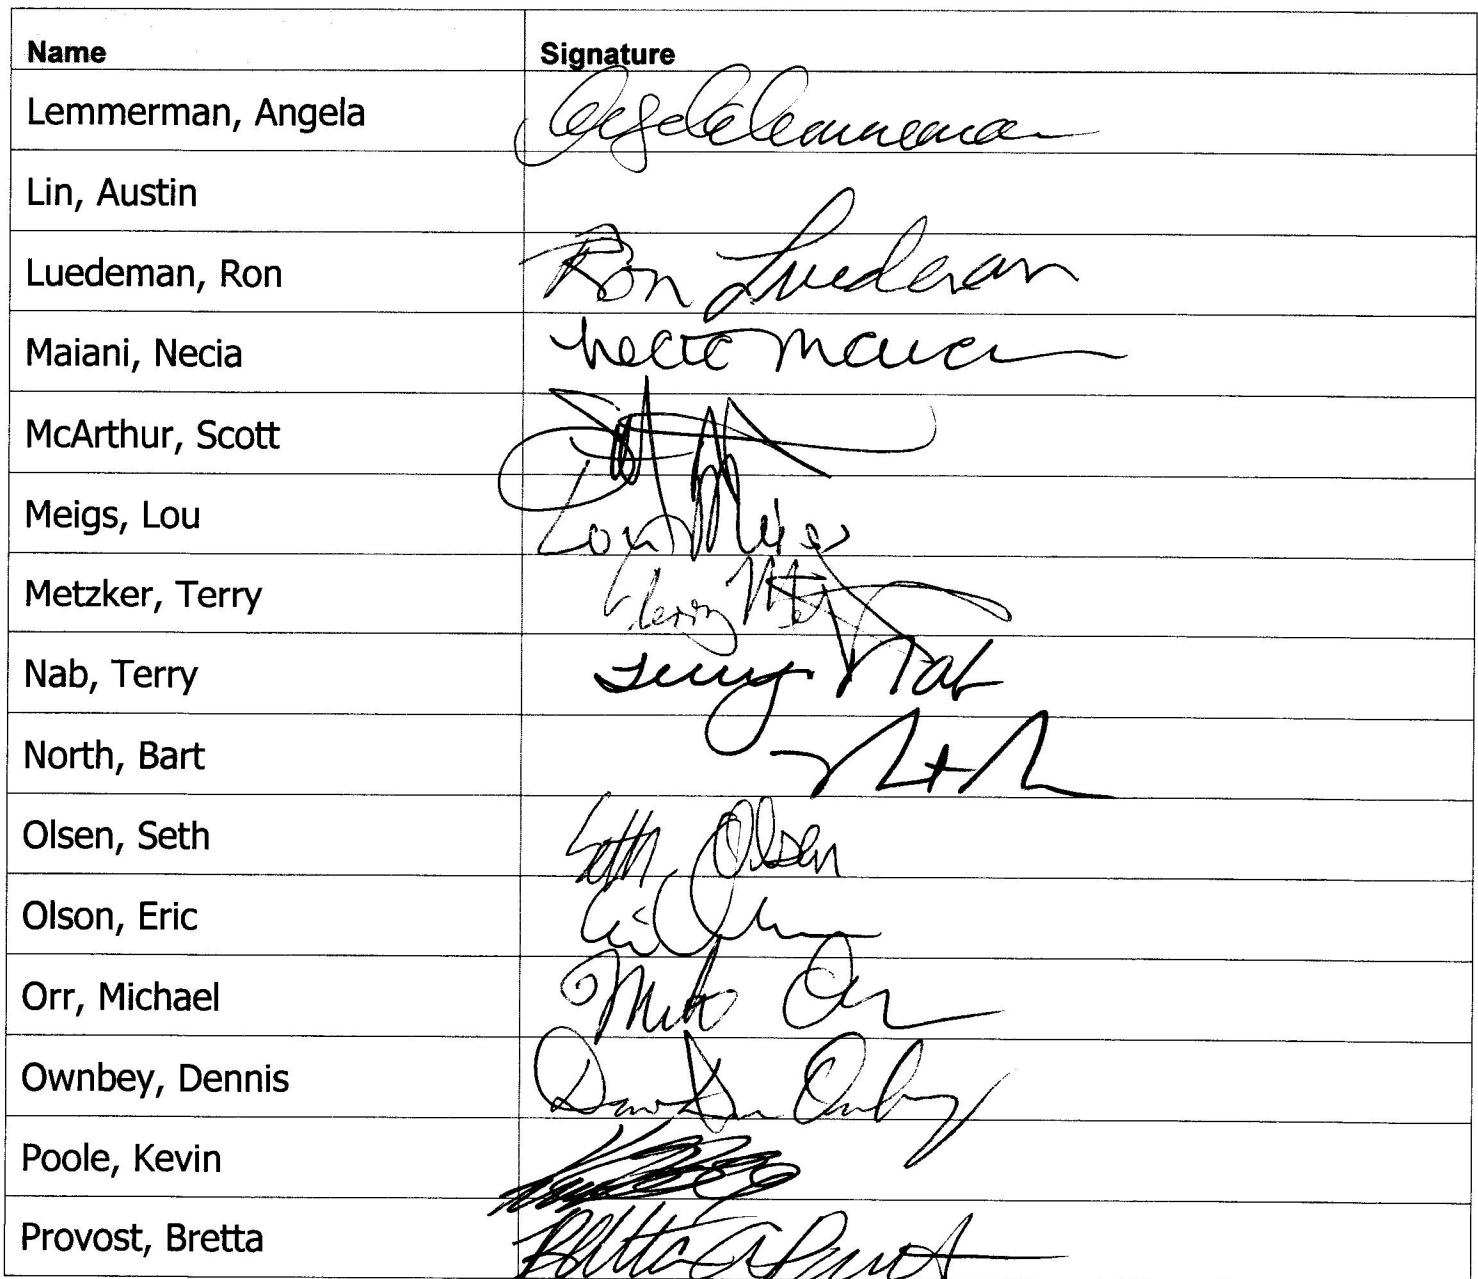 Name Signature
Lemmerman, Angela Angela Lemmerman
Lin, Austin
Luedeman, Ron Ron Luedeman
Maiani, Necia Necia Maiani
McArthur, Scott
Meigs, Lou Lou Meigs
Metzker, Terry Terry
Nab, Terry Terry Nab
North, Bart
Olsen, Seth Seth Olsen
Olson, Eric Eric
Orr, Michael Mike Orr
Ownbey, Dennis Ownbey
Poole, Kevin
Provost, Bretta Bretta Provost